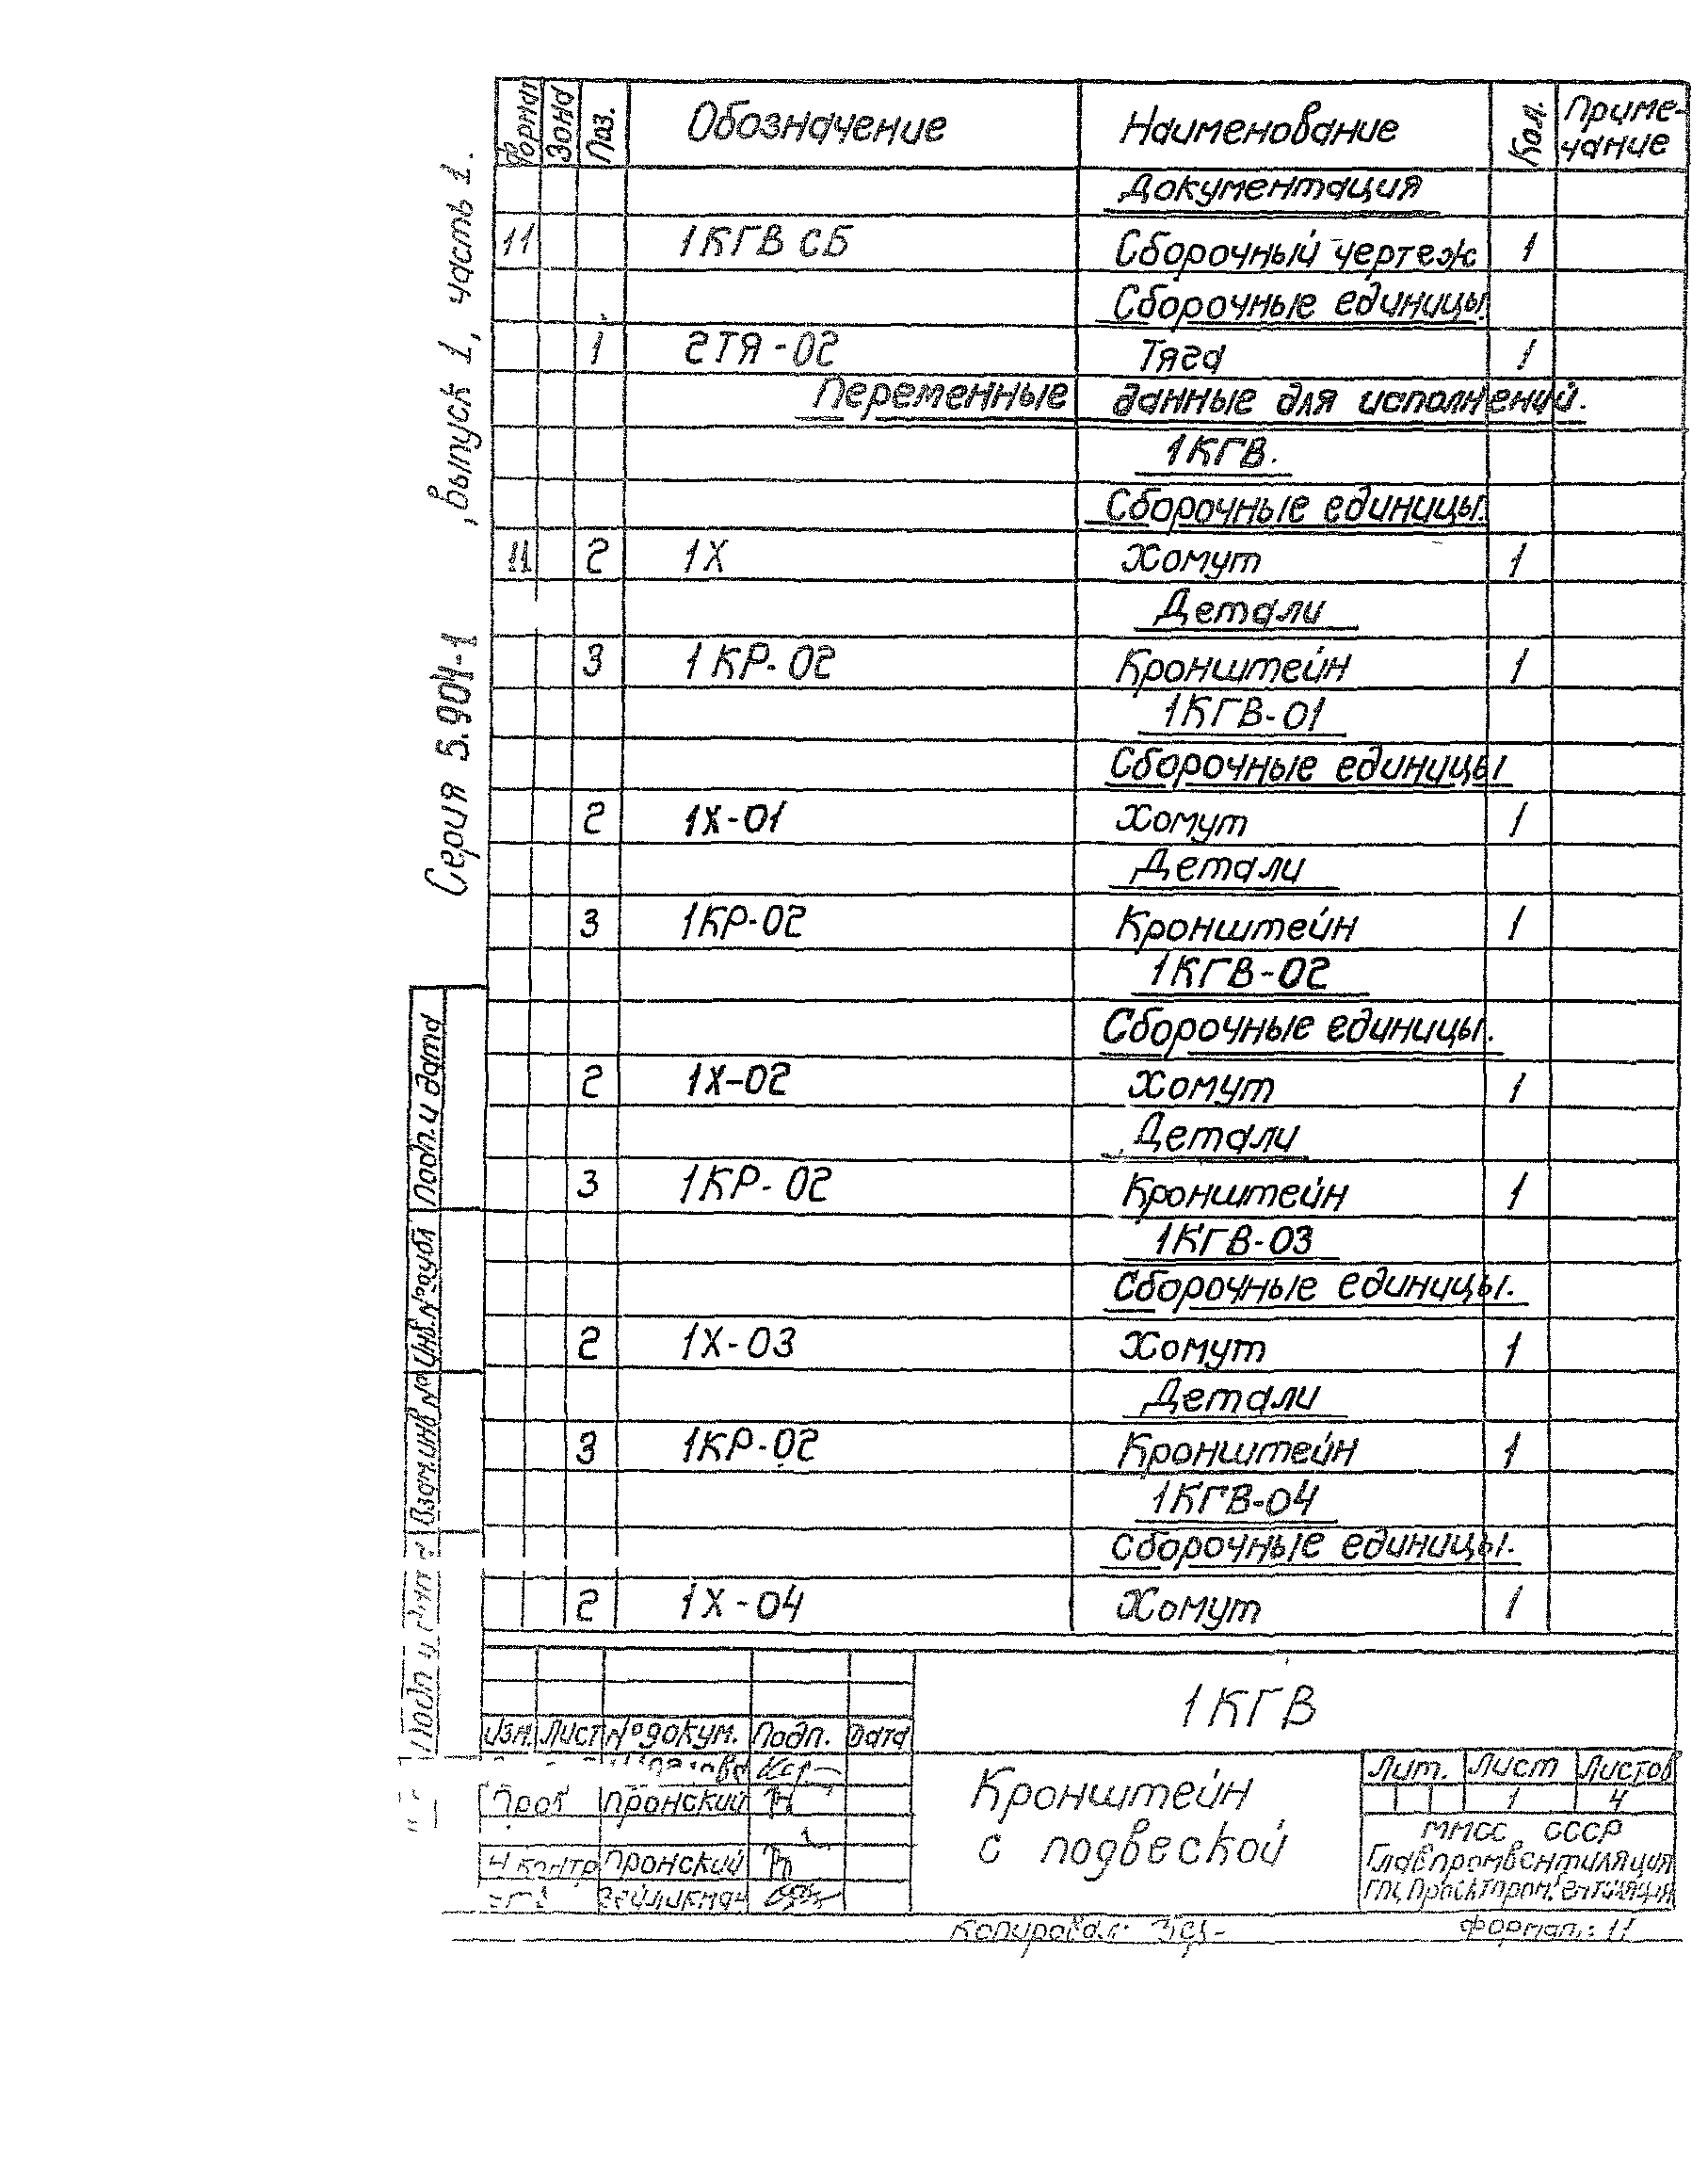 Серия 5.904-1 , выпуск 1, часть 1.
Формат Зона Поз. Обозначение Наименование Кол. Приме-
чание
Документация
11 1КГВ СБ Сборочный чертеж 1
Сборочные единицы.
1 2ТЯ-02 Тяга 1
Переменные данные для исполнений.
1КГВ.
Сборочные единицы.
11 2 1Х Хомут 1
Детали
3 1КР-02 Кронштейн 1
1КГВ-01
Сборочные единицы
2 1Х-01 Хомут 1
Детали
3 1КР-02 Кронштейн 1
1КГВ-02
Сборочные единицы.
2 1Х-02 Хомут 1
Детали
3 1КР-02 Кронштейн 1
1КГВ-03
Сборочные единицы.
2 1Х-03 Хомут 1
Детали
3 1КР-02 Кронштейн 1
1КГВ-04
Сборочные единицы.
2 1Х-04 Хомут 1
Подп. и дата
Инв.№ дубл
Взам.инв №
Подп и дата
1КГВ
Изм. Лист №докум. Подп. Дата
Пров Пронский
Н контр Пронский
Кронштейн
с подвеской
Лит. Лист Листов
1 4
ММСС СССР
Главпромвентиляция
ГПИ Проектпромвентиляция
Копировал: Формат: 11